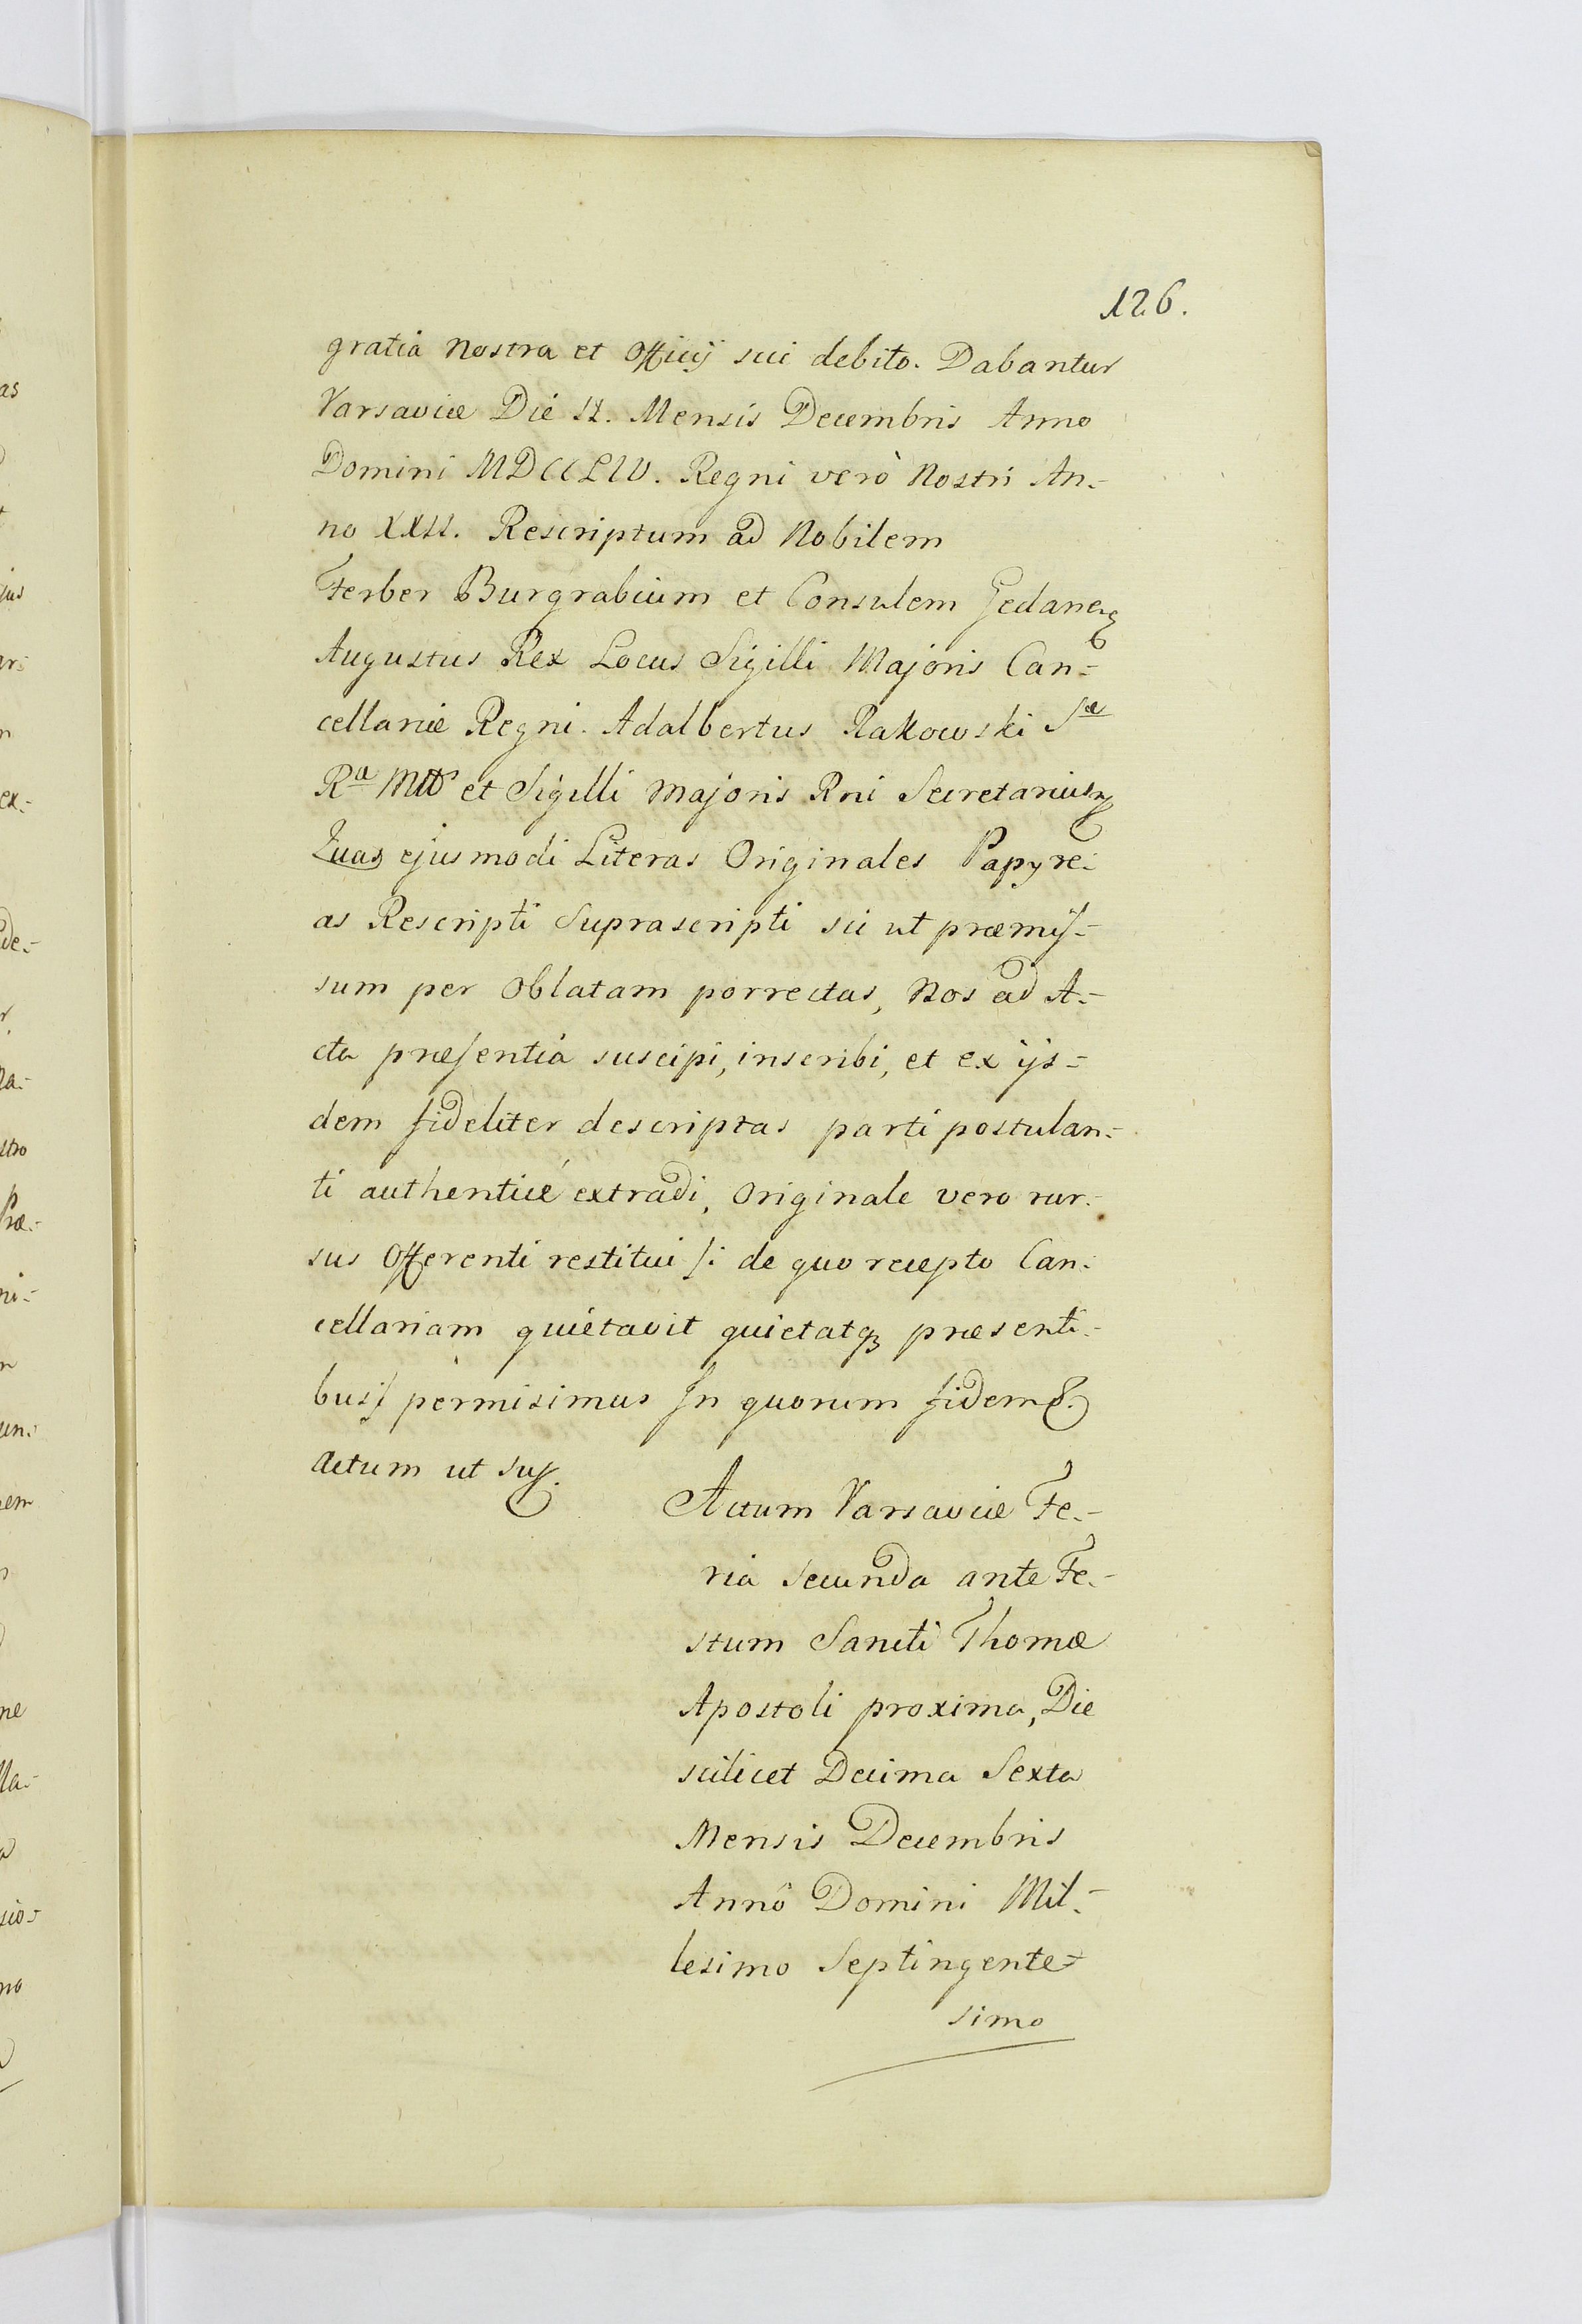 126.
gratia Nostra et Officij sui debito. Dabantur
Varsaviæ Die II. Mensis Decembris Anno
Domini MDCCLIV. Regni verò Nostri An-
no XXII. Rescriptum ad Nobilem
Ferber Burgrabium et Consulem Gedanen
Augustus Rex Locus Sigilli Majoris Can-
cellariæ Regni. Adalbertus Rakowski Sæ
Ra Mttis et Sigilli Majoris Rni Secretarius
Quas ejusmodi Literas Originales Papyre-
as Rescripti Suprascripti sic ut præmis-
sum per Oblatam porrectas, Nos ad A-
cta præsentia suscipi, inscribi, et ex ijs-
dem fideliter descriptas parti postulan-
ti authenticè extradi, Originale vero rur-
sus Offerenti restitui /: de quo recepto Can-
cellariam quietavit quietatq præsenti-
bus :/ permisimus In quorum fidem &.
Actum ut sup.
Actum Varsaviæ Fe-
ria Secunda ante Fe-
stum Sancti Thomæ
Apostoli proxima, Die
scilicet Decima Sexta
Mensis Decembris
Annô Domini Mil-
lesimo Septingente-
simo
as
ius
ar-
ex-
de-
na-
stro
Præ-
ni-
un-
nem
ne
lla-
sio-
no